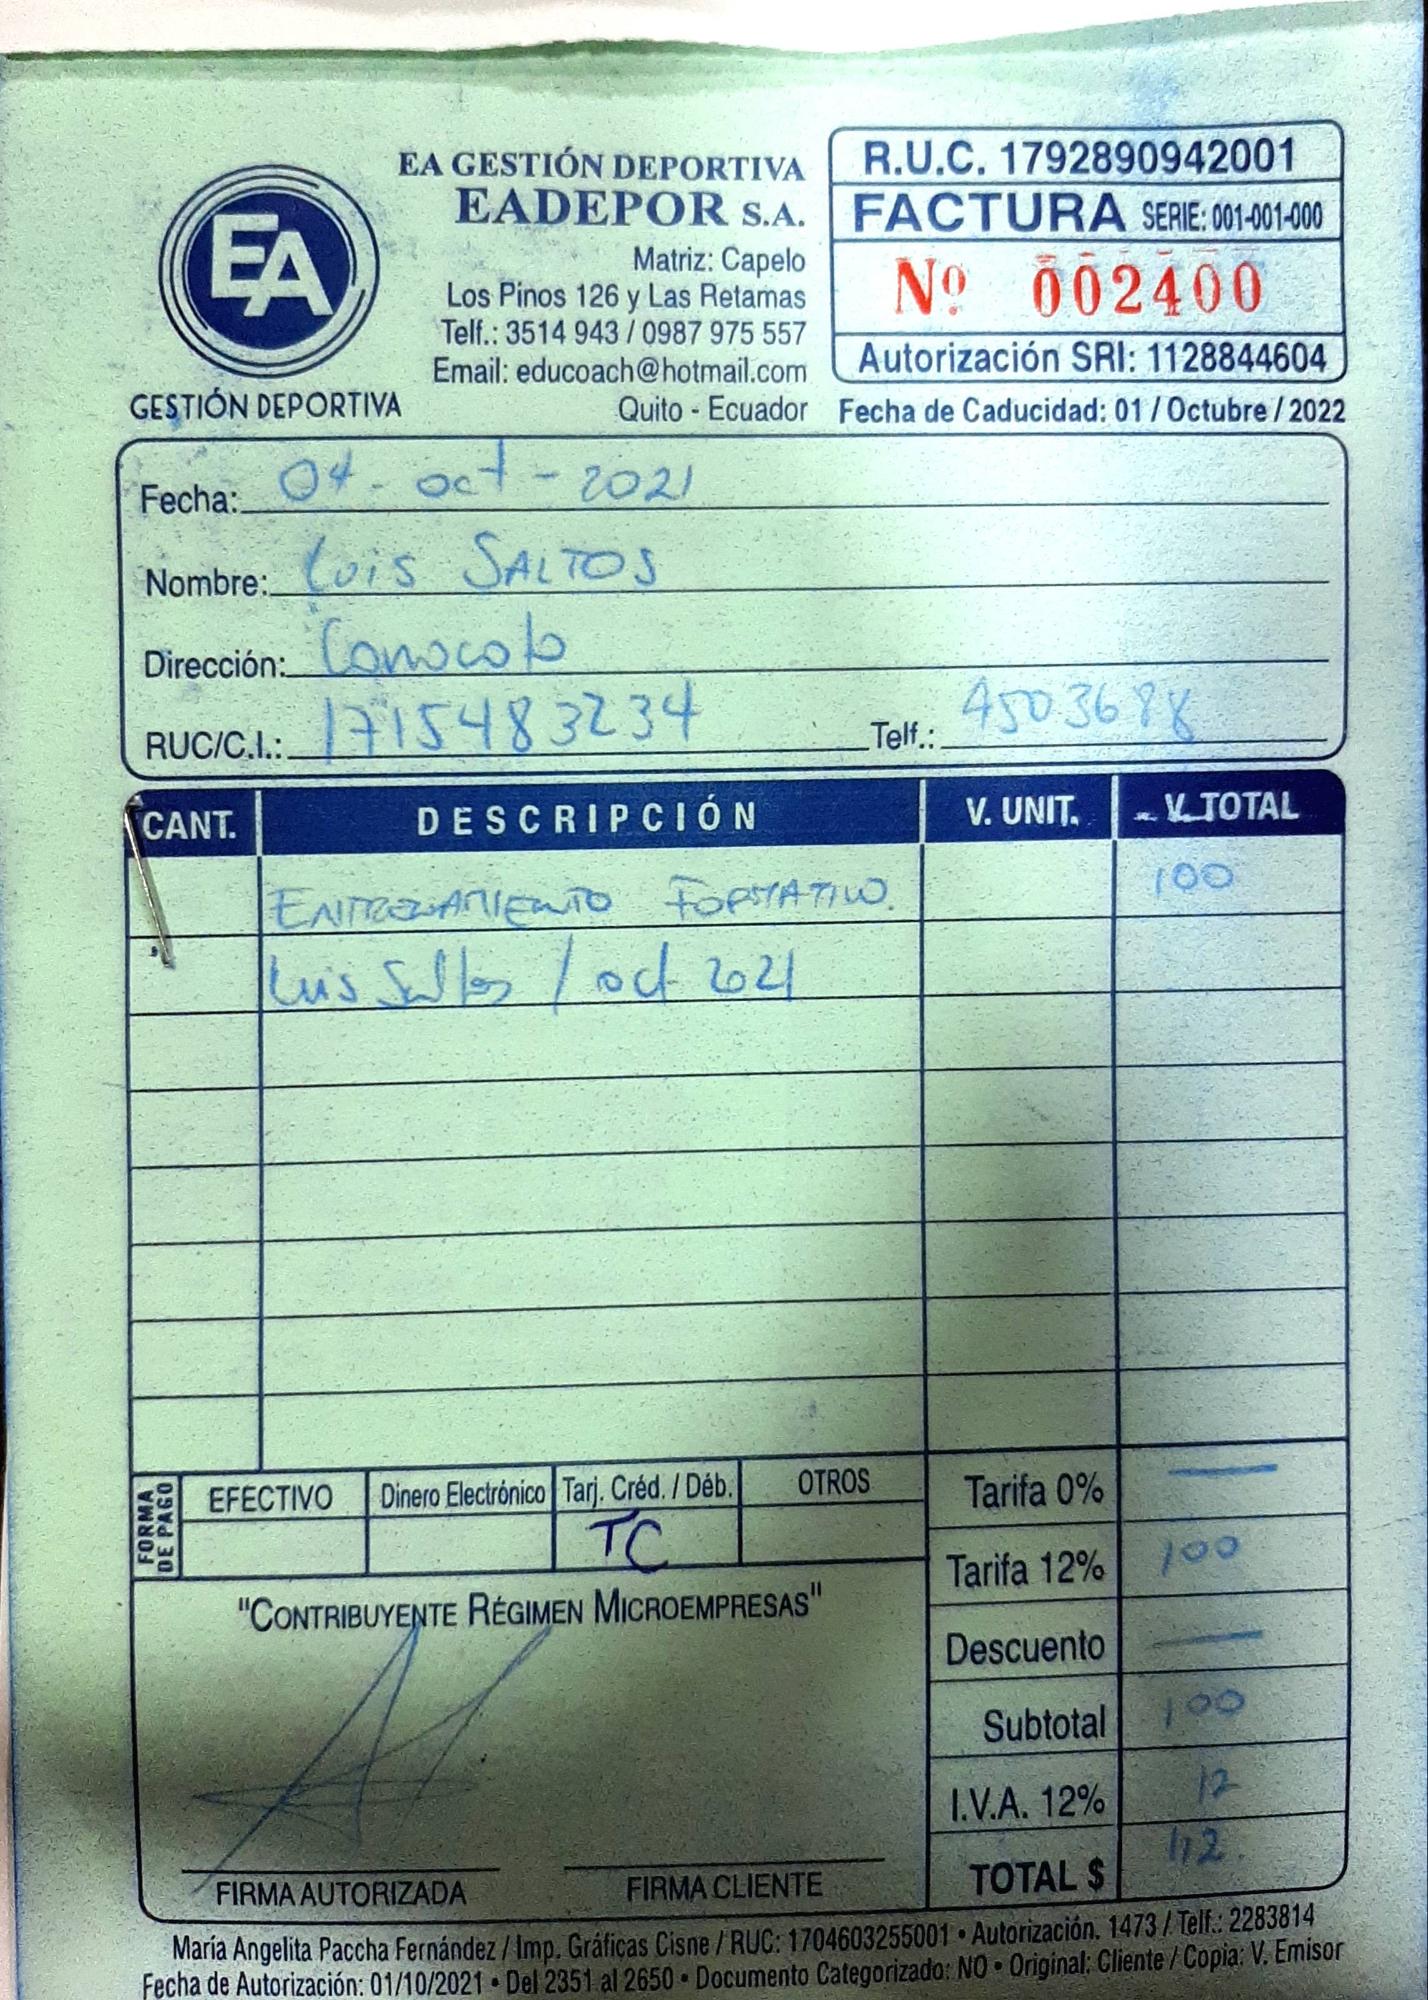 EA
GESTIÓN DEPORTIVA
EA GESTIÓN DEPORTIVA
EADEPOR S.A.
Matriz: Capelo
Los Pinos 126 y Las Retamas
Telf.: 3514 943 / 0987 975 557
Email: educoach@hotmail.com
Quito - Ecuador
R.U.C. 1792890942001
FACTURA SERIE: 001-001-000
Nº 002400
Autorización SRI: 1128844604
Fecha de Caducidad: 01 / Octubre / 2022
Fecha: 04 - oct - 2021
Nombre: Luis SALTOS
Dirección: Conocoto
RUC/C.I.: 1715483234 Telf.: 4503688
CANT. DESCRIPCIÓN V. UNIT. V. TOTAL
ENTRENAMIENTO FORMATIVO. 100
Luis Saltos / oct 2021
FORMA DE PAGO
EFECTIVO Dinero Electrónico Tarj. Créd. / Déb. OTROS
TC
Tarifa 0% —
Tarifa 12% 100
Descuento —
Subtotal 100
I.V.A. 12% 12
TOTAL $ 112.
"CONTRIBUYENTE RÉGIMEN MICROEMPRESAS"
FIRMA AUTORIZADA FIRMA CLIENTE
María Angelita Paccha Fernández / Imp. Gráficas Cisne / RUC: 1704603255001 • Autorización. 1473 / Telf.: 2283814
Fecha de Autorización: 01/10/2021 • Del 2351 al 2650 • Documento Categorizado: NO • Original: Cliente / Copia: V. Emisor